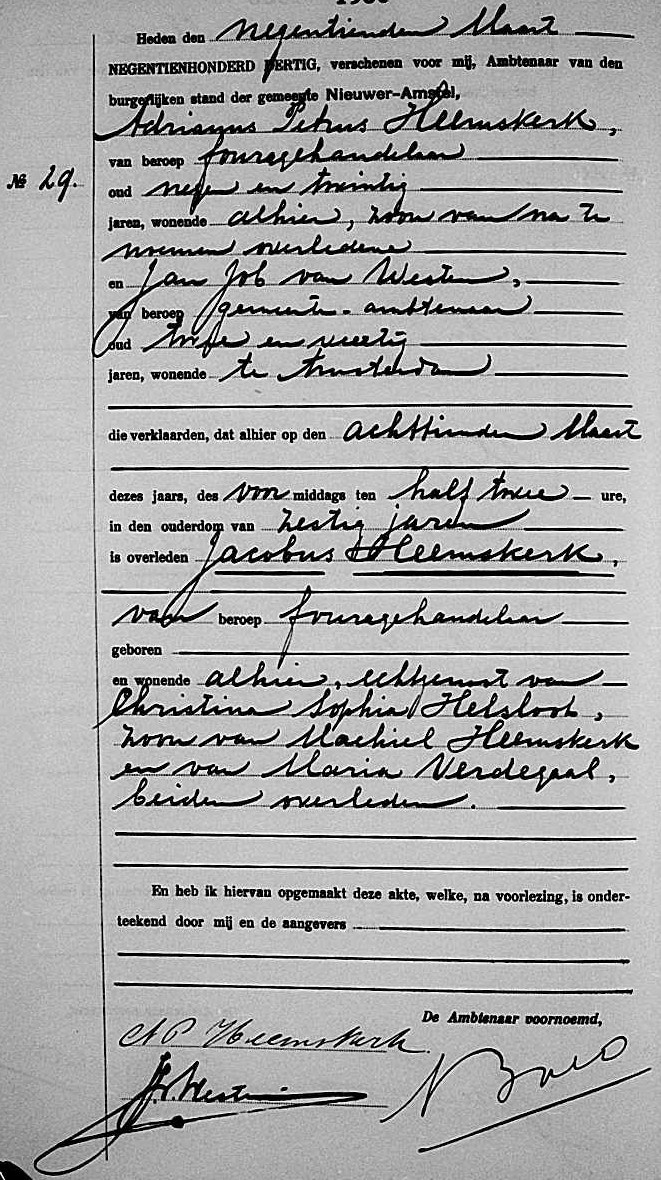 Heden den negentienden Maart
NEGENTIENHONDERD DERTIG, verschenen voor mij, Ambtenaar van den
burgerlijken stand der gemeente Nieuwer-Amstel,
Adrianus Petrus Heemskerk,
van beroep fouragehandelaar
№ 29.
oud negen en twintig
jaren, wonende alhier, zoon van na te
noemen overledene
en Jan Job van Westen,
van beroep gemeente-ambtenaar
oud twee en veertig
jaren, wonende te Amsterdam
die verklaarden, dat alhier op den achttienden Maart
dezes jaars, des voor middags ten half twee ure,
in den ouderdom van zestig jaren
is overleden Jacobus Heemskerk,
van beroep fouragehandelaar
geboren
en wonende alhier, echtgenoot van
Christina Sophia Helsloot,
zoon van Machiel Heemskerk
en van Maria Verdegaal,
beiden overleden.
En heb ik hiervan opgemaakt deze akte, welke, na voorlezing, is onder-
teekend door mij en de aangevers
De Ambtenaar voornoemd,
AP Heemskerk.